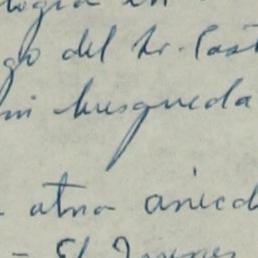 logía en
go del Sr. Cast
mi busqueda
otra anécd
- El